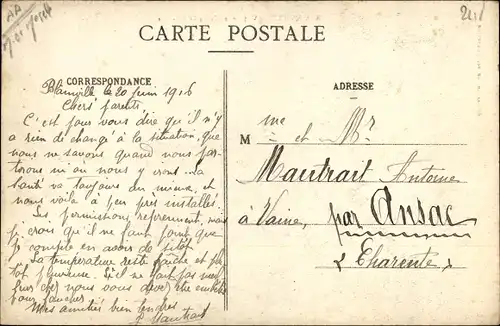 CARTE POSTALE
CORRESPONDANCE
Blainville le 20 juin 1916
Chers parents
C'est pour vous dire qu'il n'y
a rien de changé à la situation, que
nous ne savons quand nous par-
tirons ni ou nous y irons. La
santé va toujours du mieux, et
nous voila à peu près installés.
Les permissions reprennent, mais
je crois qu'il ne faut point que
je compte en avoir de sitôt
La température reste fraiche et plu-
tôt pluvieuse. S'il ne fait pas meil-
leur chez nous vous devez être embêtés
pour faucher
Mes amitiés bien tendres
Mautrait
ADRESSE
M me et Mr
Mautrait Antoine
à Vaine, par Ansac
Charente